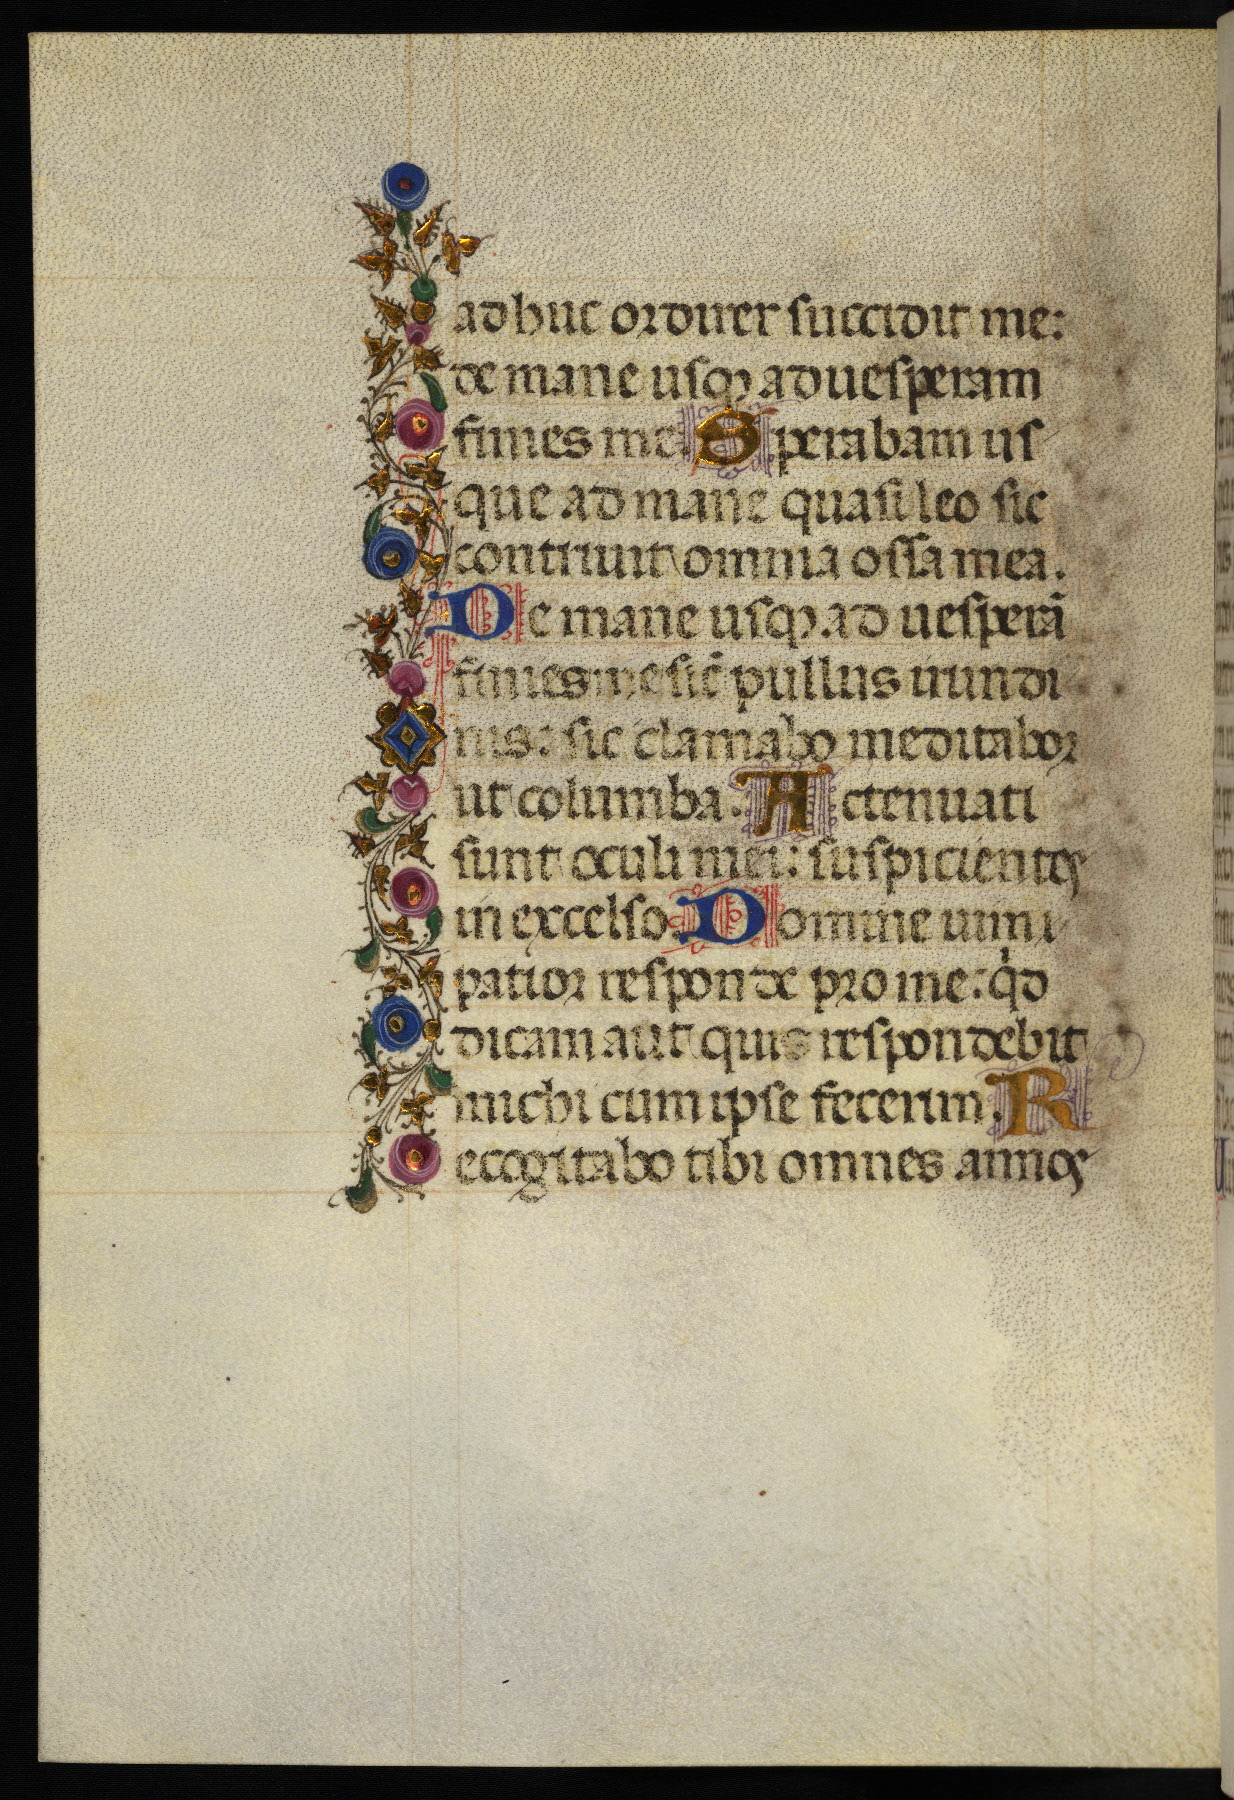 adhuc ordirer succidit me:
de mane usqꝫ ad uesperam
finies me. Sperabam us
que ad mane quasi leo sic
contriuit omnia ossa mea.
De mane usqꝫ ad uesperā
finies me sic̄ pullus irundi
nis: sic clamabo meditabor
ut columba. Actenuati
sunt oculi mei: suspicientes
in excelso. Domine uim
patior responde pro me: qd̓
dicam aut quis respondebit
michi cum ipse fecerim. R
ecogitabo tibi omnes annos